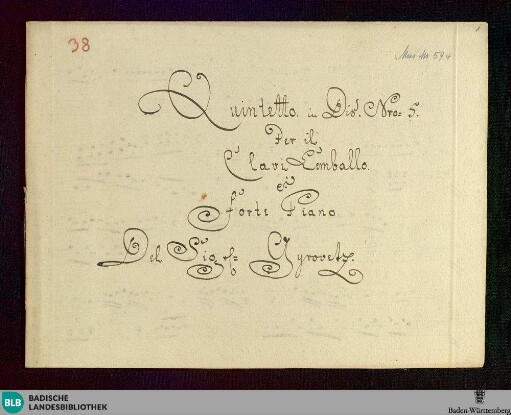 38
Mus. Hs. 594
Quintetto. in Dis. Nro: 5.
Per il
Clavi Cemballo.
ò
Forte Piano.
Del Sigre: Gyrovetz.
BLB BADISCHE
LANDESBIBLIOTHEK
Baden-Württemberg